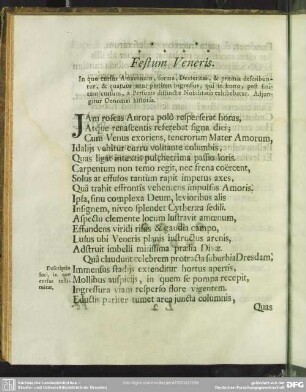 Festum Veneris.
In quo cursus Amantium, forma, Dexteritas, & præmia describun-
tur, & quatuor anni partium ingressus, qui in homo, post fini-
tum cursum, à Pictoris adjuncta Nobilitate celebrabatur. Adjun-
gitur Oenomai historia.
JAm roseas Aurora polo resperserat horas,
Atque renascentis referebat signa diei;
Cum Venus exoriens, tenerorum Mater Amorum,
Idaliis vehitur curru volitante columbis,
Quas ligat intextis pulcherrima passio loris.
Carpentum non temo regit, nec frena coërcent,
Solus at effusos tantum rapit impetus axes,
Quà trahit effrontis vehemens impulsus Amoris.
Ipsa, sinu complexa Deum, levioribus alis
Insignem, niveo splendet Cytherea sedili.
Aspectu clemente locum lustravit amœnum,
Effundens viridi risus & gaudia campo,
Lusus ubi Veneris planis instructus arenis,
Adstruit imbelli mirissima præsia Divæ.
Quà claudunt celebrem protracta suburbia Dresdam,
Immensus stadiis extenditur hortus apertis,
Mollibus auspiciis, in quem se pompa recepit,
Ingressura viam resperso flore virentem.
Eductis paries tumet arca juncta columnis,
Quas
Descriptio
loci, in quo
cursus insti-
tuitur,